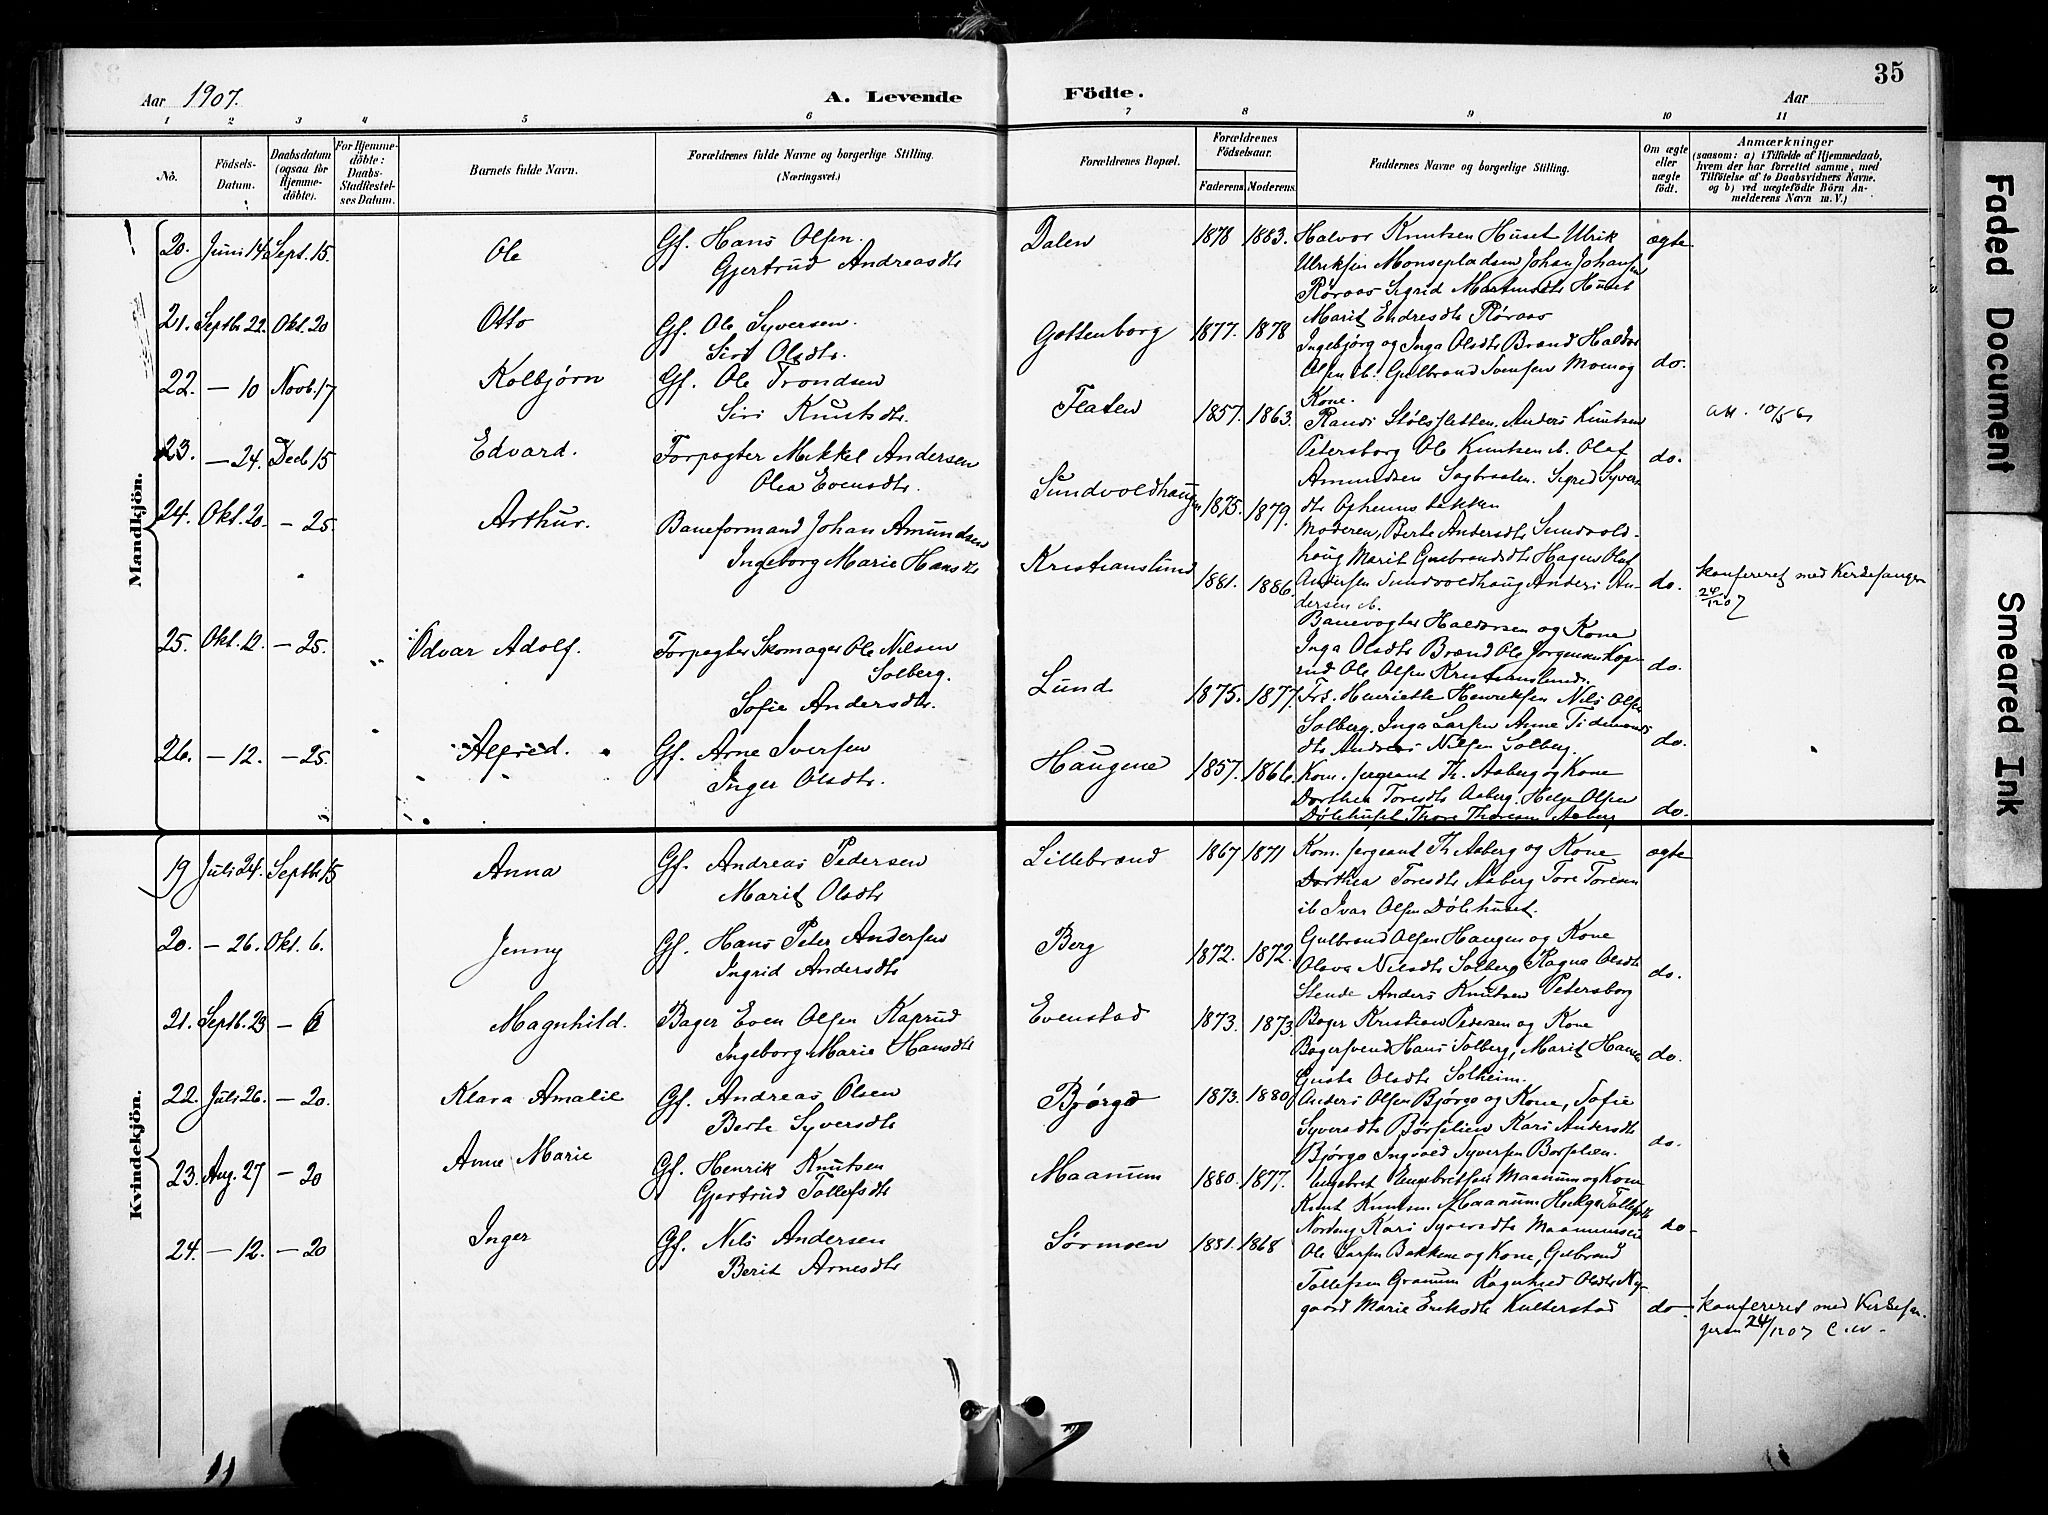 35
Aar 1907.
A. Levende Födte.
Aar
1 2 3 4 5 6 7 8 9 10 11
No.
Födsels-Datum.
Daabsdatum (ogsaa för Hjemmedöbte).
For Hjemmedöbte: Daabs-Stadfestelses Datum.
Barnets fulde Navn.
Forældrenes fulde Navne og borgerlige Stilling. (Næringsvei.)
Forældrenes Bopæl.
Forældrenes Födselsaar.
Faderens. Moderens.
Faddernes Navne og borgerlige Stilling.
Om ægte eller uægte födt.
Anmærkninger (saasom: a) i Tilfælde af Hjemmedaab, hvem der har forrettet samme, med Tilföielse af to Daabsvidners Navne. og b) ved uægtefödte Börn Anmelderens Navn m. V.)
Mandkjön.
20. Juni 14. Sept. 15. Ole Gf. Hans Olsen. Dalen 1878 1883. Halvor Knutsen Huset Ulrik ægte
Gjertrud Andreasdtr Ulriksen Monsepladsen Johan Johans
Røraas Sigrid Martinsdtr Huset
Marit Endresdtr Røraas
21. Septb. 22. Okt. 20 Otto Gf. Ole Syversen. Gottenborg 1877. 1878 Ingebjørg og Inga Olsdtr Brænd Haldor
Siri Olsdtr. Olsen ib. Gulbrand Svensen Moen og do.
Kone.
22. — 10 Novb. 17 Kolbjørn Gf. Ole Trondsen Flaten 1857. 1863. Randi Stølsletten. Anders Knutsen
Siri Knutsdtr. Petersborg Ole Knutsen ib. Olaf do.
Amundsen Sagbraaten. Sigrid Syvers
dtr Opheimsbakken
23. — 24. Decb 15 Edvard. Forpagter Mikkel Andersen Sundvoldhaugen 1875. 1879. Moderen, Berte Andersdtr Sundvold-
Olea Evensdtr. haug Marit Gulbrandsdtr Hagen Olaf
Andersen Sundvoldhaug Anders An- do.
dersen ib.
24. Okt. 20. — 25. Arthur. Baneformand Johan Amundsen Kristianslund 1881. 1886. Banevogter Haldorsen og Kone
Ingeborg Marie Hansdtr Inga Olsdtr Brænd Ole Jørgensen Kop-
rud Ole Olsen Kristianslund. do.
konfereret med Kirkesangeren
24/12 07
25. Okt. 12. — 25. Odvar Adolf. Forpagter Skomager Ole Nilsen Lund 1875. 1877. Frk. Henriette Henriksen Nils Olsen
Solberg. Solberg. Inga Larsen Anne Tidemands
Sofie Andersdtr. dtr Anders Nilsen Solberg. do.
26. — 12. — 25. Alfred. Gf. Arne Iversen Haugene 1857. 1866. Kom. sergeant Th. Aaberg og Kone
Inger Olsdtr. Dorthea Toresdtr Aaberg. Helge Olsen do.
Dølehuset Thore Thoresen Aaberg
Kvindekjön.
19 Juli 24. Septb 15 Anna Gf. Andreas Pedersen Lillebrænd 1867 1871 Kom. sergeant Th Aaberg og Kone ægte
Marit Olsdtr Dorthea Toresdtr Aaberg Tore Toresen
ib Ivar Olsen Dølehuset.
20. — 26. Okt. 6. Jenny Gf. Hans Peter Andersen Berg 1872. 1872. Gulbrand Olsen Haugen og Kone
Ingrid Andersdtr Olava Nilsdtr Solberg Ragna Olsdtr do.
Stende Anders Knutsen Petersborg
21. Septb. 23 — 6 Magnhild. Bager Even Olsen Kaprud Evenstad 1873. 1873. Bager Kristian Pedersen og Kone
Ingeborg Marie Hansdtr Bagersvend Hans Solberg, Marit Hansen do.
Gusta Olsdtr Solheim.
22. Juli 26. — 20. Klara Amalie Gf. Andreas Olsen Bjørgo 1873. 1880 Anders Olsen Bjørgo og Kone, Sofie
Berte Syversdtr Syversdtr Børslien Kari Andersdtr do.
Bjørgo Ingvald Syversen Børslien.
23. Aug. 27 — 20 Anne Marie Gf. Henrik Knutsen Maanum 1880. 1877. Engebret Engebretsen Maanum og Kone
Gjertrud Tollefsdtr Knut Knutsen Maanum Helga Tollefsdtr
Kari Syversdtr do
24. — 12. — 20 Inger Gf. Nils Andersen Sørmoen 1881. 1868 Ole Larsen Bakkene og Kone, Gulbrand
Berit Arnesdtr Tollefsen Granum Ragnhild Olsdtr Ny-
gaard Marie Eriksdtr Kulterstad do
konfereret med Kirkesan-
geren 24/12 07 C.W.
Faded Document
Smeared Ink